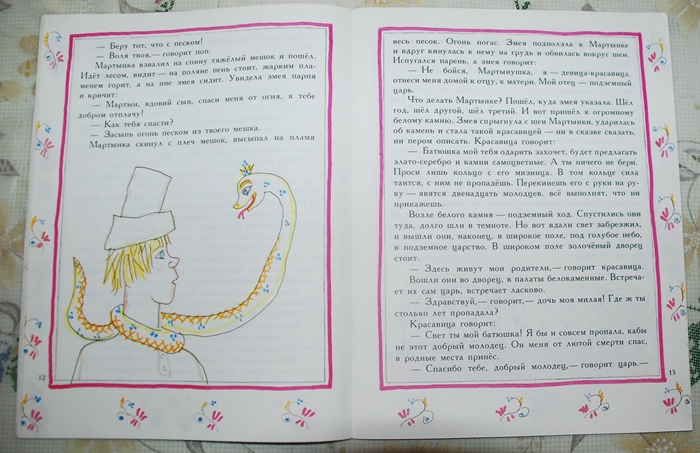 — Беру тот, что с песком!
— Воля твоя,— говорит поп.
Мартынка взвалил на спину тяжёлый мешок и пошёл.
Идёт лесом, видит — на поляне пень стоит, жарким пла-
менем горит, а на пне змея сидит. Увидела змея парня
и кричит:
— Мартын, вдовий сын, спаси меня от огня, я тебе
добром отплачу!
— Как тебя спасти?
— Засыпь огонь песком из твоего мешка.
Мартынка скинул с плеч мешок, высыпал на пламя
12
весь песок. Огонь погас. Змея подползла к Мартынке
и вдруг кинулась к нему на грудь и обвилась вокруг шеи.
Испугался парень, а змея говорит:
— Не бойся, Мартынушка, я — девица-красавица,
отнеси меня домой к отцу, к матери. Мой отец — подземный
царь.
Что делать Мартынке? Пошёл, куда змея указала. Шёл
год, шёл другой, шёл третий. И вот пришёл к огромному
белому камню. Змея спрыгнула с шеи Мартынки, ударилась
об камень и стала такой красавицей — ни в сказке сказать,
ни пером описать. Красавица говорит:
— Батюшка мой тебя одарить захочет, будет предлагать
злато-серебро и камни самоцветные. А ты ничего не бери.
Проси лишь кольцо с его мизинца. В том кольце сила
таится, с ним не пропадёшь. Перекинешь его с руки на ру-
ку — явятся двенадцать молодцев, всё выполнят, что ни
прикажешь.
Возле белого камня — подземный ход. Спустились они
туда, долго шли в темноте. Но вот вдали свет забрезжил,
и вышли они, наконец, в широкое поле, под голубое небо,
в подземное царство. В широком поле золочёный дворец
стоит.
— Здесь живут мои родители,— говорит красавица.
Вошли они во дворец, в палаты белокаменные. Встреча-
ет их сам царь, встречает ласково.
— Здравствуй,— говорит,— дочь моя милая! Где ж ты
столько лет пропадала?
Красавица говорит:
— Свет ты мой батюшка! Я бы и совсем пропала, кабы
не этот добрый молодец. Он меня от лютой смерти спас,
в родные места принёс.
— Спасибо тебе, добрый молодец,— говорит царь.—
13